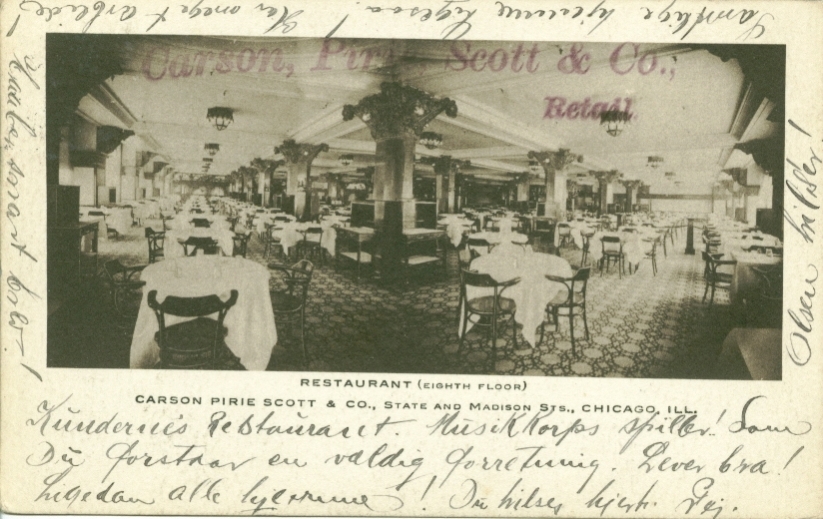 Samtlige hjemme hyges! Har meget arbeide!
Carson, Pirie Scott & Co.,
Retail
snart brev!
Olsen hilser!
RESTAURANT (EIGHTH FLOOR)
CARSON PIRIE SCOTT & CO., STATE AND MADISON STS., CHICAGO, ILL.
Kundernes Restaurant. Musikkorps spiller! Som
Du forstaar en veldig forretning. Lever bra!
Ligedan alle hjemme! Du hilses hjert.